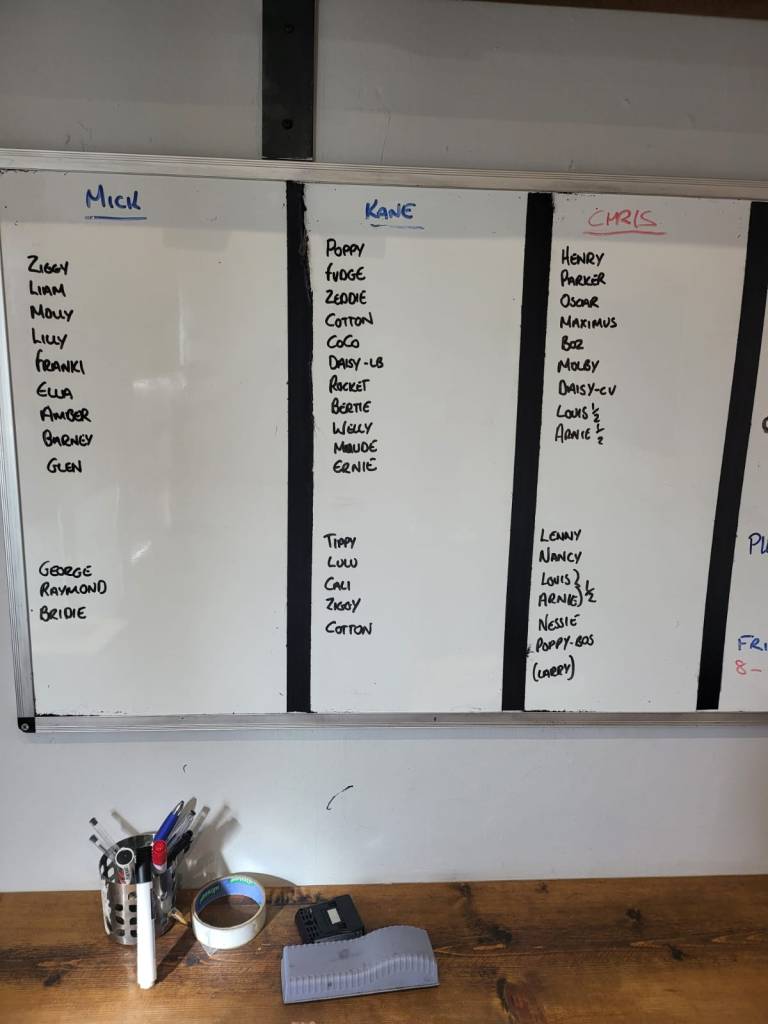 MICK
ZIGGY
LIAM
MOLLY
LILLY
FRANKI
ELLA
AMBER
BARNEY
GLEN
GEORGE
RAYMOND
BRIDIE
KANE
POPPY
FUDGE
ZEDDIE
COTTON
COCO
DAISY-LB
ROCKET
BERTIE
WELLY
MAUDE
ERNIE
TIPPY
LULU
CALI
ZIGGY
COTTON
CHRIS
HENRY
PARKER
OSCAR
MAXIMUS
BOZ
MOLBY
DAISY-CV
LOUIS ½
ARNIE ½
LENNY
NANCY
LOUIS }
ARNIE } ½
NESSIE
POPPY-BOS
(LARRY)
FRI
8-